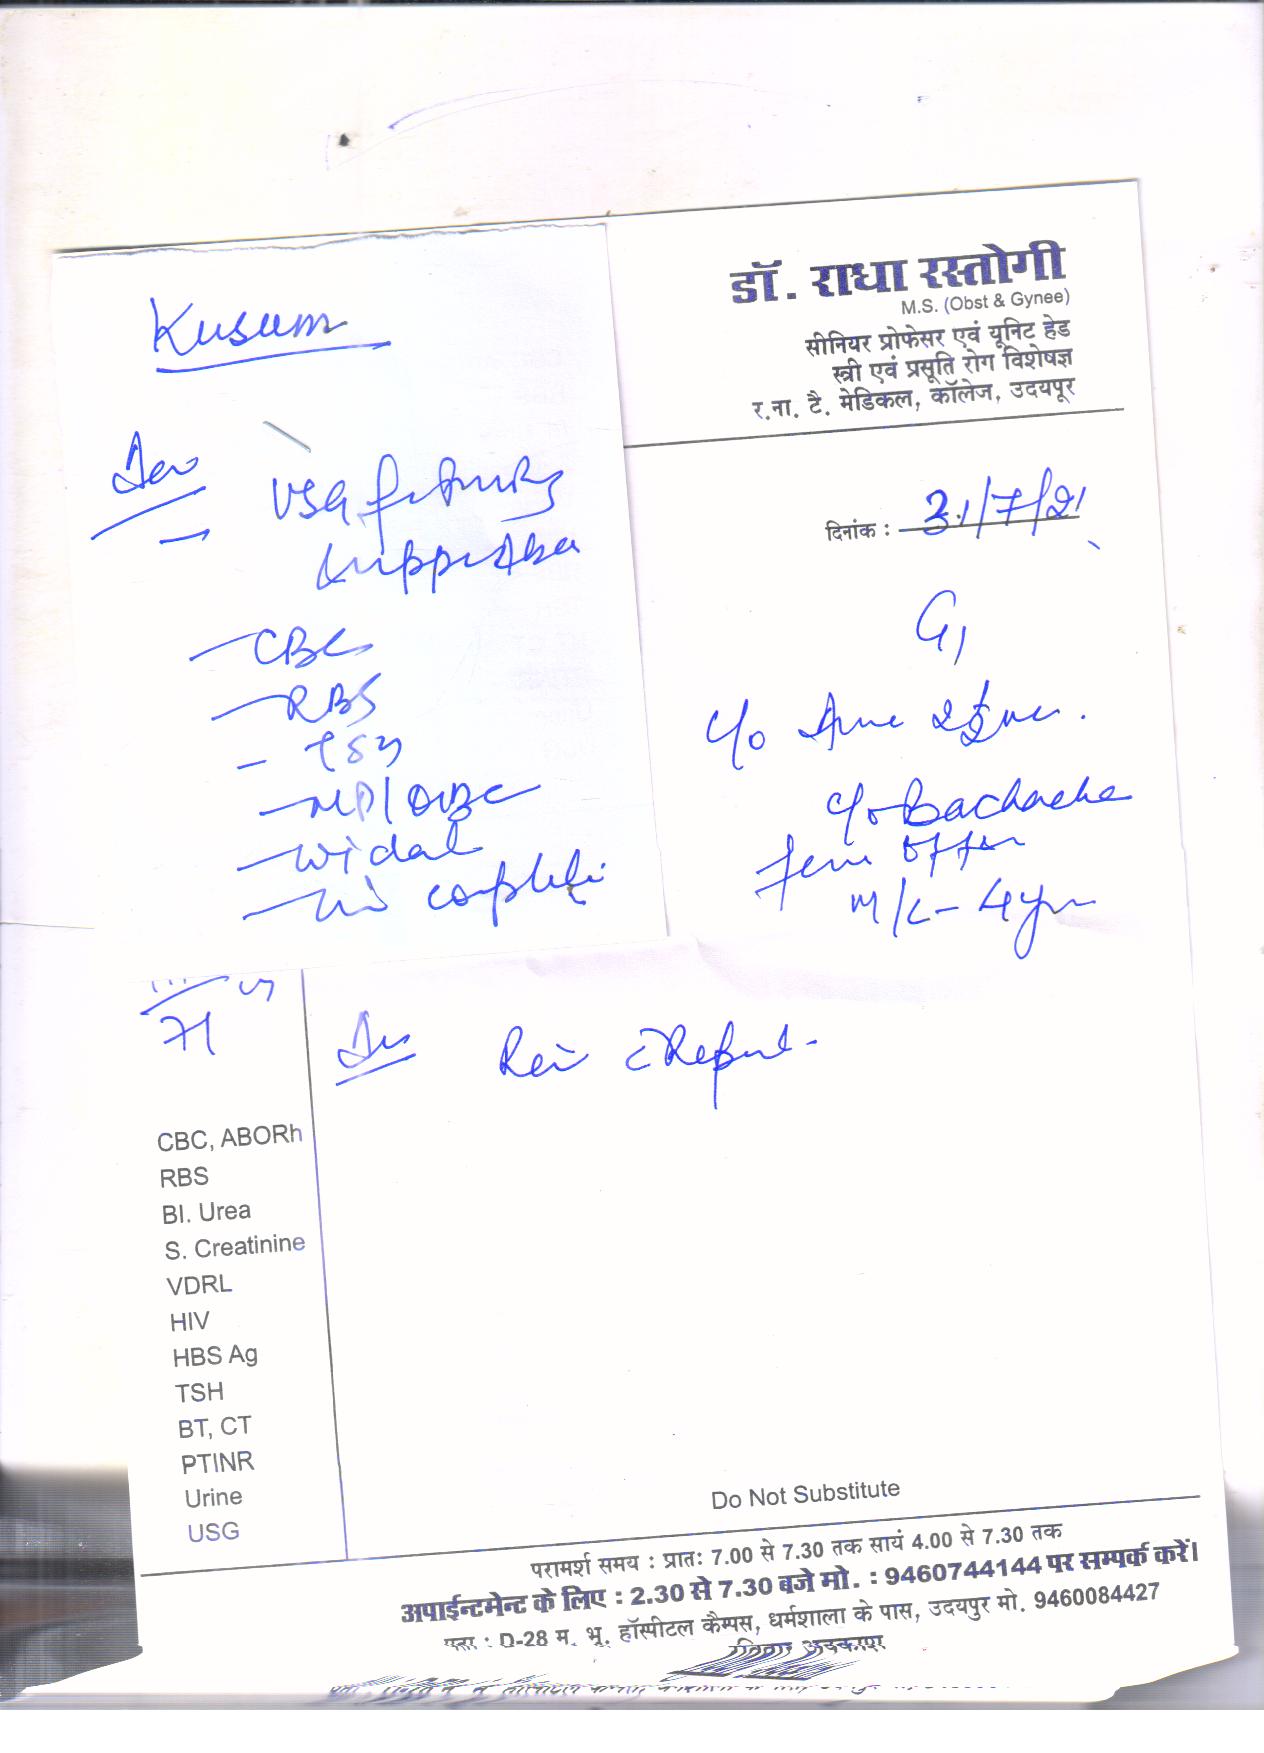 Kusum
USG
CBC
RBS
TSH
MP/QBC
Widal
डॉ. राधा रस्तोगी
M.S. (Obst & Gynee)
सीनियर प्रोफेसर एवं यूनिट हेड
स्त्री एवं प्रसूति रोग विशेषज्ञ
र.ना. टै. मेडिकल, कॉलेज, उदयपूर
दिनांक : 31/7/21
G1
c/o
c/o Backache
M/L - 4 yr
71
Rev c Report
CBC, ABORh
RBS
Bl. Urea
S. Creatinine
VDRL
HIV
HBS Ag
TSH
BT, CT
PTINR
Urine
USG
Do Not Substitute
परामर्श समय : प्रातः 7.00 से 7.30 तक सायं 4.00 से 7.30 तक
अपाईन्टमेन्ट के लिए : 2.30 से 7.30 बजे मो. : 9460744144 पर सम्पर्क करें।
पता : D-28 म. भू. हॉस्पीटल कैम्पस, धर्मशाला के पास, उदयपुर मो. 9460084427
रविवार अवकाश